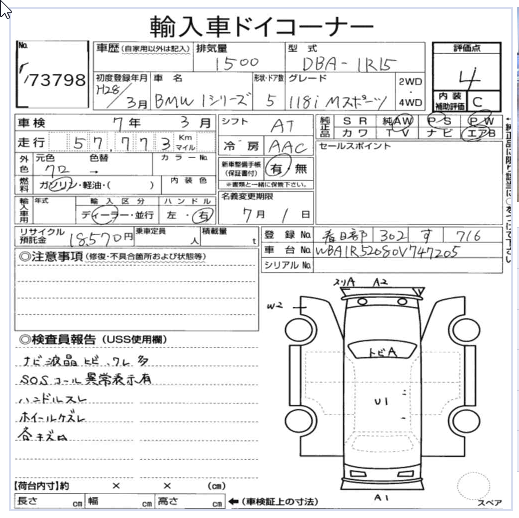 輸入車ドイコーナー
No.
73798
車歴(自家用以外は記入) 排気量 型式
1500 DBA-1R15
評価点
4
内装補助評価 C
初度登録年月 車名 形状・ドア数 グレード 2WD・4WD
H28/3月 BMW 1シリーズ 5 118i Mスポーツ
車検 7年3月
シフト AT
走行 57,773 Km マイル
冷房 AAC
純正品 SR 純AW P・S P・W
カワ TV ナビ エアB
外色 元色 色替 カラーNo.
クロ →
新車整備手帳(保証書付) 有・無
※書類と一緒に保管下さい。
セールスポイント
燃料 ガソリン・軽油・( ) 内装色
名義変更期限
7月1日
輸入車用 年式 輸入区分 ハンドル
ディーラー・並行 左・右
リサイクル預託金 18,570円 乗車定員 人 積載量 t
登録No. 春日部 302 す 716
車台No. WBA1R52080V747205
シリアルNo.
◎注意事項(修復・不具合箇所および状態等)
◎検査員報告(USS使用欄)
ナビ液晶ヒビ、ワレ多
SOSコール異常表示有
ハンドルスレ
ホイールケズレ
各キズ凹
スリA A2
W2
トビA
U1
A1
スペア
【荷台内寸】約 × × (cm)
長さ cm 幅 cm 高さ cm ←(車検証上の寸法)